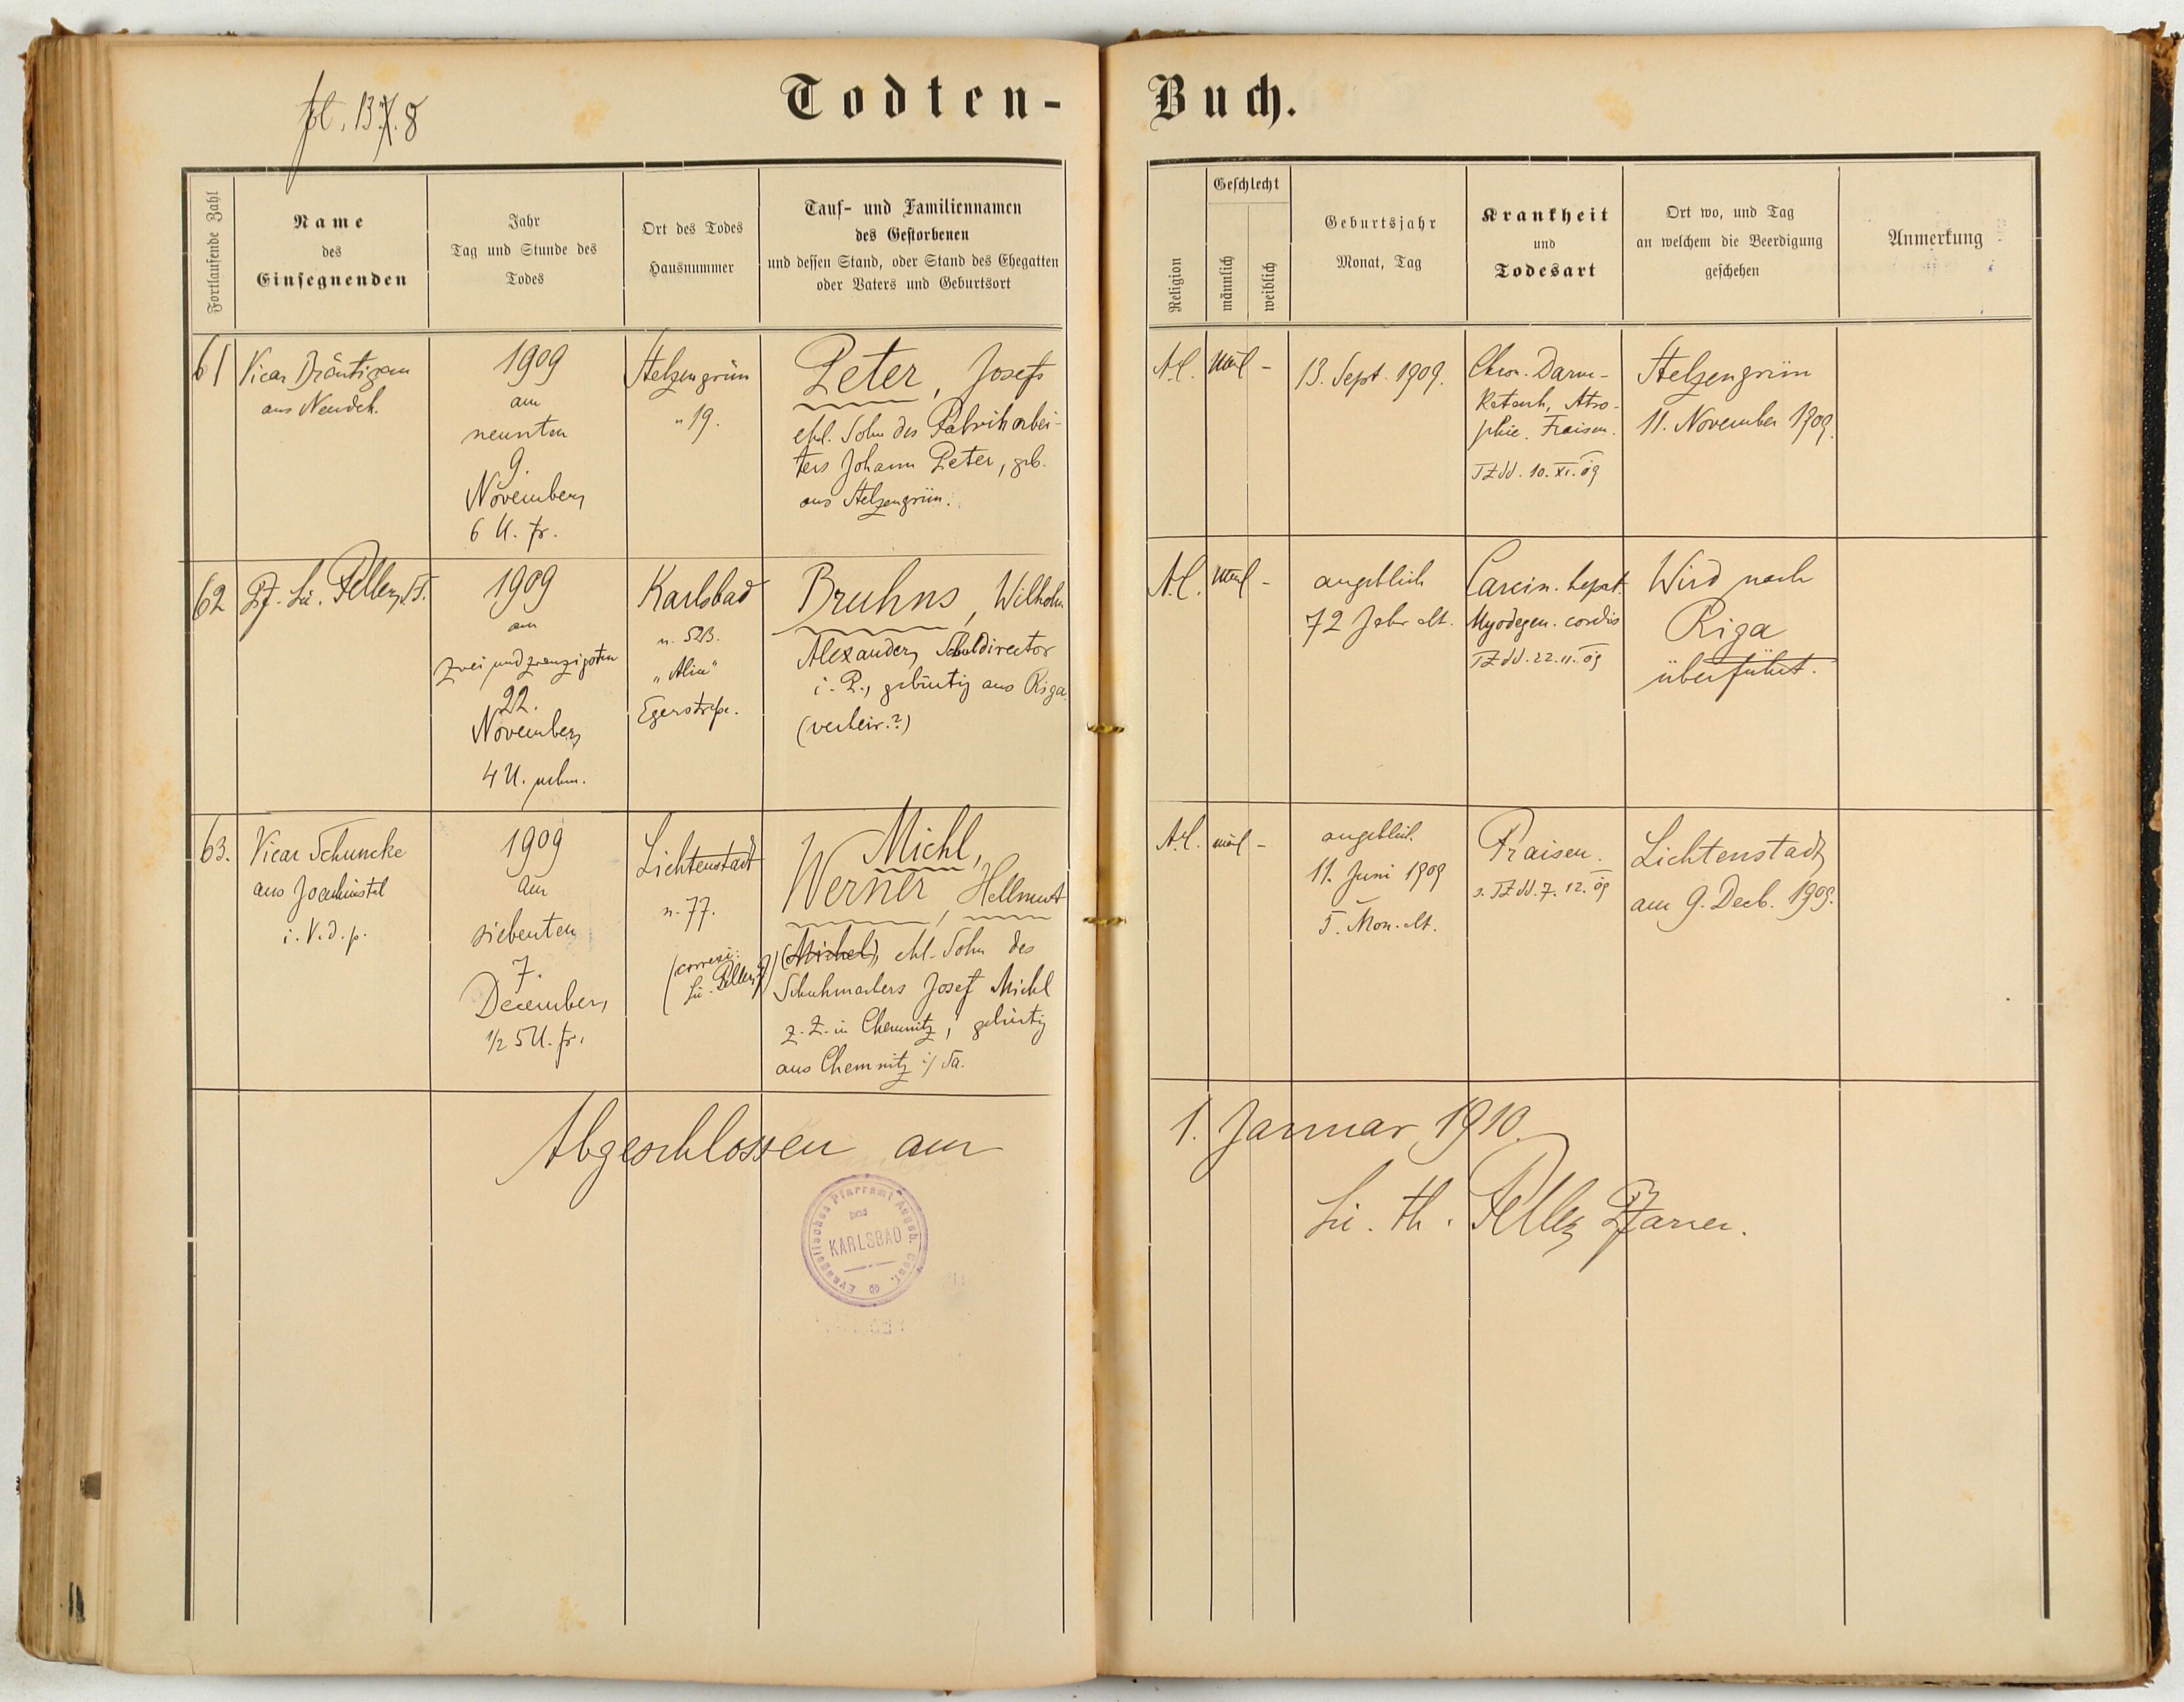 fol. 137. 8
Todten-Buch.
Fortlaufende Zahl
Name
des
Einsegnenden
Jahr
Tag und Stunde des
Todes
Ort des Todes
Hausnummer
Tauf- und Familiennamen
des Gestorbenen
und dessen Stand, oder Stand des Ehegatten
oder Vaters und Geburtsort
Religion
Geschlecht
männlich
weiblich
Geburtsjahr
Monat, Tag
Krankheit
und
Todesart
Ort wo, und Tag
an welchem die Beerdigung
geschehen
Anmerkung
61
Vicar Bräutigam
aus Neudek.
1909
am
neunten
9.
November,
6 U. fr.
Stelzengrün
n 19.
Peter, Josef
ehel. Sohn des Fabrikarbei-
ters Johann Peter, geb.
aus Stelzengrün.
A.C.
mnl
-
13. Sept. 1909.
Chron. Darm-
Katarrh, Atro-
phie. Fraisen.
TZ dd. 10. XI. 09
Stelzengrün
11. November 1909.
62
Pf. Lic. Peller,
1909
am
zwei und zwanzigsten
22.
November,
4 U. nchm.
Karlsbad
n. 523.
"Alice"
Egerstrsse.
Bruhns, Wilhelm
Alexander, Schuldirector
i. P., gebürtig aus Riga
(verheir.?)
A.C.
mnl
-
angeblich
72 Jahr alt.
Carcin. hepat.
Myodegen. cordis
TZ dd. 22. 11. 09
Wird nach
Riga
überführt.
63.
Vicar Schuncke
aus Joachimstal
i. V. d. p.
1909
am
siebenten
7.
December,
1/2 5 U. fr.
Lichtenstadt
n. 77.
(correxi:
Lic. Peller)
Michl,
Werner, Hellmut
(Michel), ehl. Sohn des
Schuhmachers Josef Michl
z. Z. in Chemnitz, gebürtig
aus Chemnitz i/ Sa.
A.C.
mnl
-
angeblich.
11. Juni 1909
5. Mon. alt.
Fraisen.
s. TZ dd. 7. 12. 09
Lichtenstadt
am 9. Decb. 1909.
Abgeschlossen am 1. Januar 1910.
Lic. th. Peller Pfarrer.
Evangelisches Pfarramt Augsb. Conf.
KARLSBAD